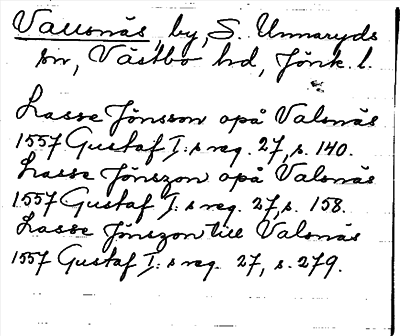 Vallsnäs, by, S. Unnaryds
sn, Västbo hd, Jönk. l.
Lasse Jönsson opå Valsnäs
1557 Gustaf I:s reg. 27, s. 140.
Lasse Jönszon opå Valsnäs
1557 Gustaf I:s reg. 27, s. 158.
Lasse Jönszon till Valsnäs
1557 Gustaf I:s reg. 27, s. 279.